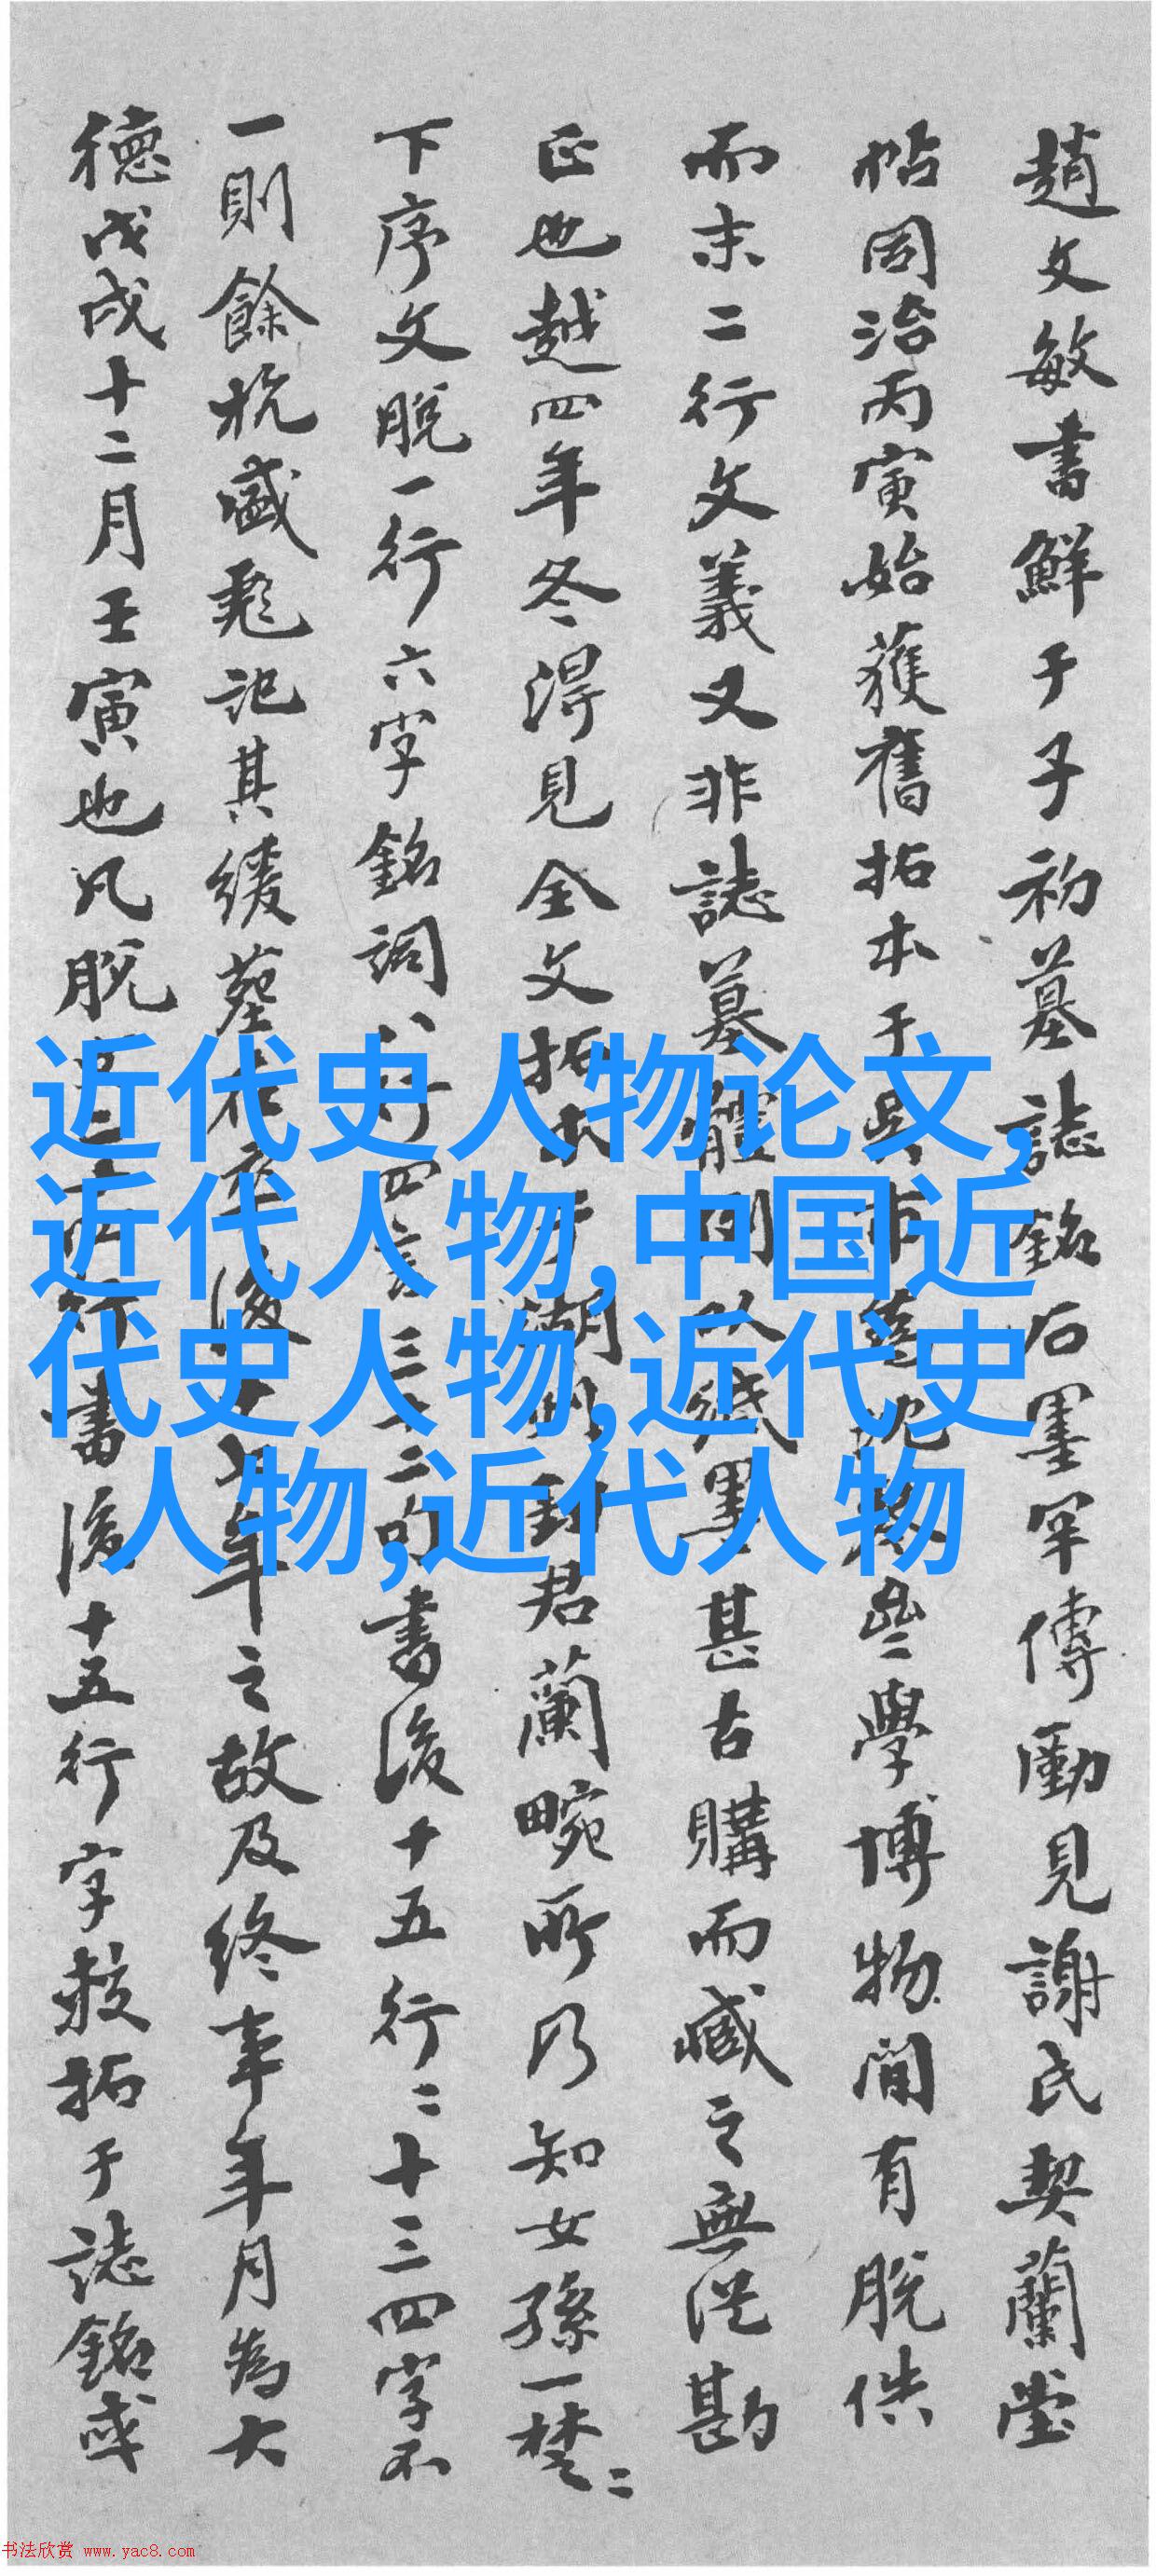 趙文敏書鮮于子初墓誌銘石墨罕傳勵見謝氏契蘭堂
帖同治丙寅始獲舊拓本于吳市
學博物間有脫佚
而末二行文義又非誌墓體
墨甚古購而臧之無從勘
正也越四年冬得見全文拓本于湖州
君蘭畹所乃知女孫一埜二
下序文脫一行六字銘詞八行四言三十二句書後十五行二十三四字不
一則餘杭盛彪記其緩葬
年之故及終事年月為大
德戊戌十二月壬寅也凡脫
書後十五行字叅拓于誌銘或
近代史人物论文,
近代人物,中国近
代史人物,近代史
人物,近代人物
书法欣赏 www.yac8.com